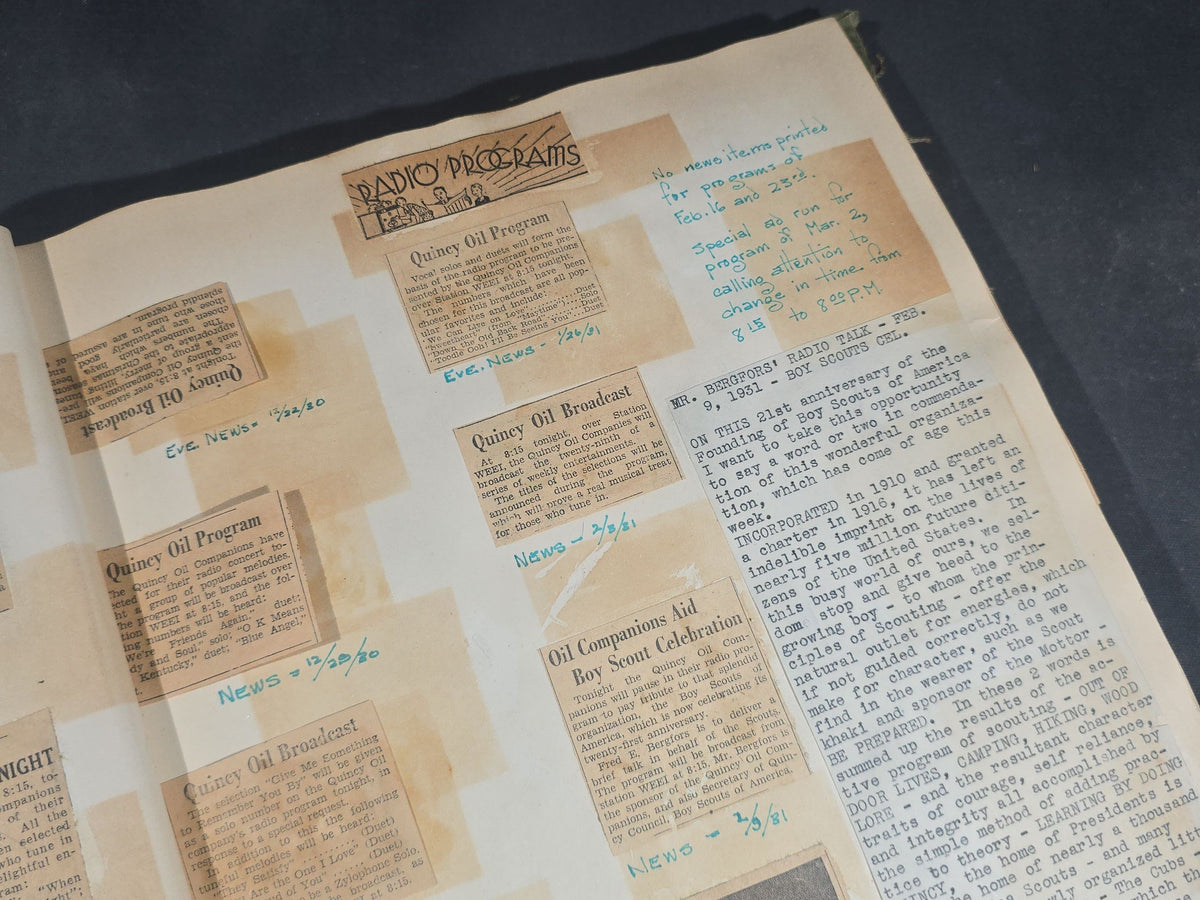 RADIO PROGRAMS
Quincy Oil Program
Vocal solos and duets will form the
basis of the radio program to be pre-
sented by the Quincy Oil Companions
over Station WEEI at 8:15 tonight.
The numbers which have been
chosen for this broadcast are all pop-
ular favorites and include:
"We Can Live on Love" Duet
"Sweetheart," (from "Maytime") Duet
"Down the Old Back Road" Solo
"Toodle Ooh! I'll Be Seeing You" Duet
Eve. News - 1/26/31
No news items printed
for programs of
Feb. 16 and 23rd.
Special ad run for
program of Mar. 2,
calling attention to
change in time from
8 15 to 8 00 P.M.
Quincy Oil Broadcast
Tonight at 8:15, over station WEEI
the Quincy Oil Companions will pre-
sent a group of merry, lilting tunes
appropriate to the Christmas season.
The numbers which have been
chosen are particularly good and
those who tune in are assured of a
splendid program.
Eve News - 12/22/30
Quincy Oil Broadcast
At 8:15 tonight, over Station
WEEI, the Quincy Oil Companies will
broadcast the twenty-ninth of a
series of weekly entertainments.
The titles of the selections will be
announced during the program,
which will prove a real musical treat
for those who tune in.
News - 2/3/31
Quincy Oil Program
The Quincy Oil Companions have
selected for their radio concert to-
night a group of popular melodies.
The program will be broadcast over
station WEEI at 8:15, and the fol-
lowing numbers will be heard:
"We're Friends Again," duet;
"Body and Soul," solo; "O K Means
Kentucky," duet; "Blue Angel,"
News - 12/29/30
Oil Companions Aid
Boy Scout Celebration
Tonight the Quincy Oil Com-
panions will pause in their radio pro-
gram to pay tribute to that splendid
organization, the Boy Scouts of
America, which is now celebrating its
twenty-first anniversary.
Fred E. Bergfors is to deliver a
brief talk in behalf of the Scouts.
The program will be broadcast from
station WEEI at 8:15. Mr. Bergfors is
the sponsor of the Quincy Oil Com-
panions, and also Secretary of Quin-
cy Council, Boy Scouts of America.
News - 2/9/31
Quincy Oil Broadcast
The selection "Give Me Something
to Remember You By" will be given
as a solo number on the Quincy Oil
company's radio program tonight, in
response to a special request.
In addition to this the following
tuneful melodies will be heard:
"They Satisfy" (Duet)
Are the One I Love" (Duet)
of You" (Duet)
be a Zylophone Solo.
broadcast, as
at 8:15.
NIGHT
8:15, to-
ompanions
of their
All the
en selected
who tune in
elightful en-
ram: "When
MR. BERGFORS' RADIO TALK - FEB.
9, 1931 - BOY SCOUTS CEL.
ON THIS 21st anniversary of the
Founding of Boy Scouts of America
I want to take this opportunity
to say a word or two in commenda-
tion of this wonderful organiza-
tion, which has come of age this
week.
INCORPORATED in 1910 and granted
a charter in 1916, it has left an
indelible imprint on the lives of
nearly five million future citi-
zens of the United States. In
this busy world of ours, we sel-
dom stop and give heed to the
growing boy - to whom the prin-
ciples of Scouting - offer the
natural outlet for energies, which
if not guided correctly, do not
make for character, such as we
find in the wearer of the Scout
khaki and sponsor of the Mottor -
BE PREPARED. In these 2 words is
summed up the results of the ac-
tive program of scouting - OUT OF
DOOR LIVES, CAMPING, HIKING, WOOD
LORE - and the resultant character
traits of courage, self reliance,
and integrity all accomplished by
the simple method of adding prac-
tice to theory - LEARNING BY DOING
QUINCY, the home of Presidents is
the home of nearly a thousand
Scouts and many
organized
The Cubs
which